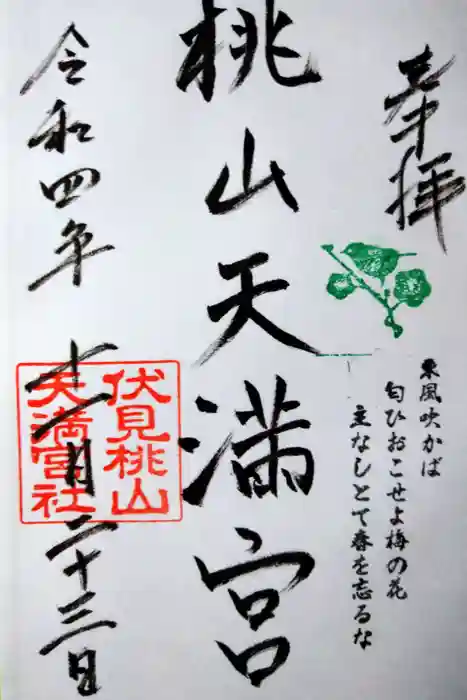 奉拝
東風吹かば
匂ひおこせよ梅の花
主なしとて春を忘るな
桃山天満宮
伏見桃山
天満宮社
令和四年
十一月二十三日